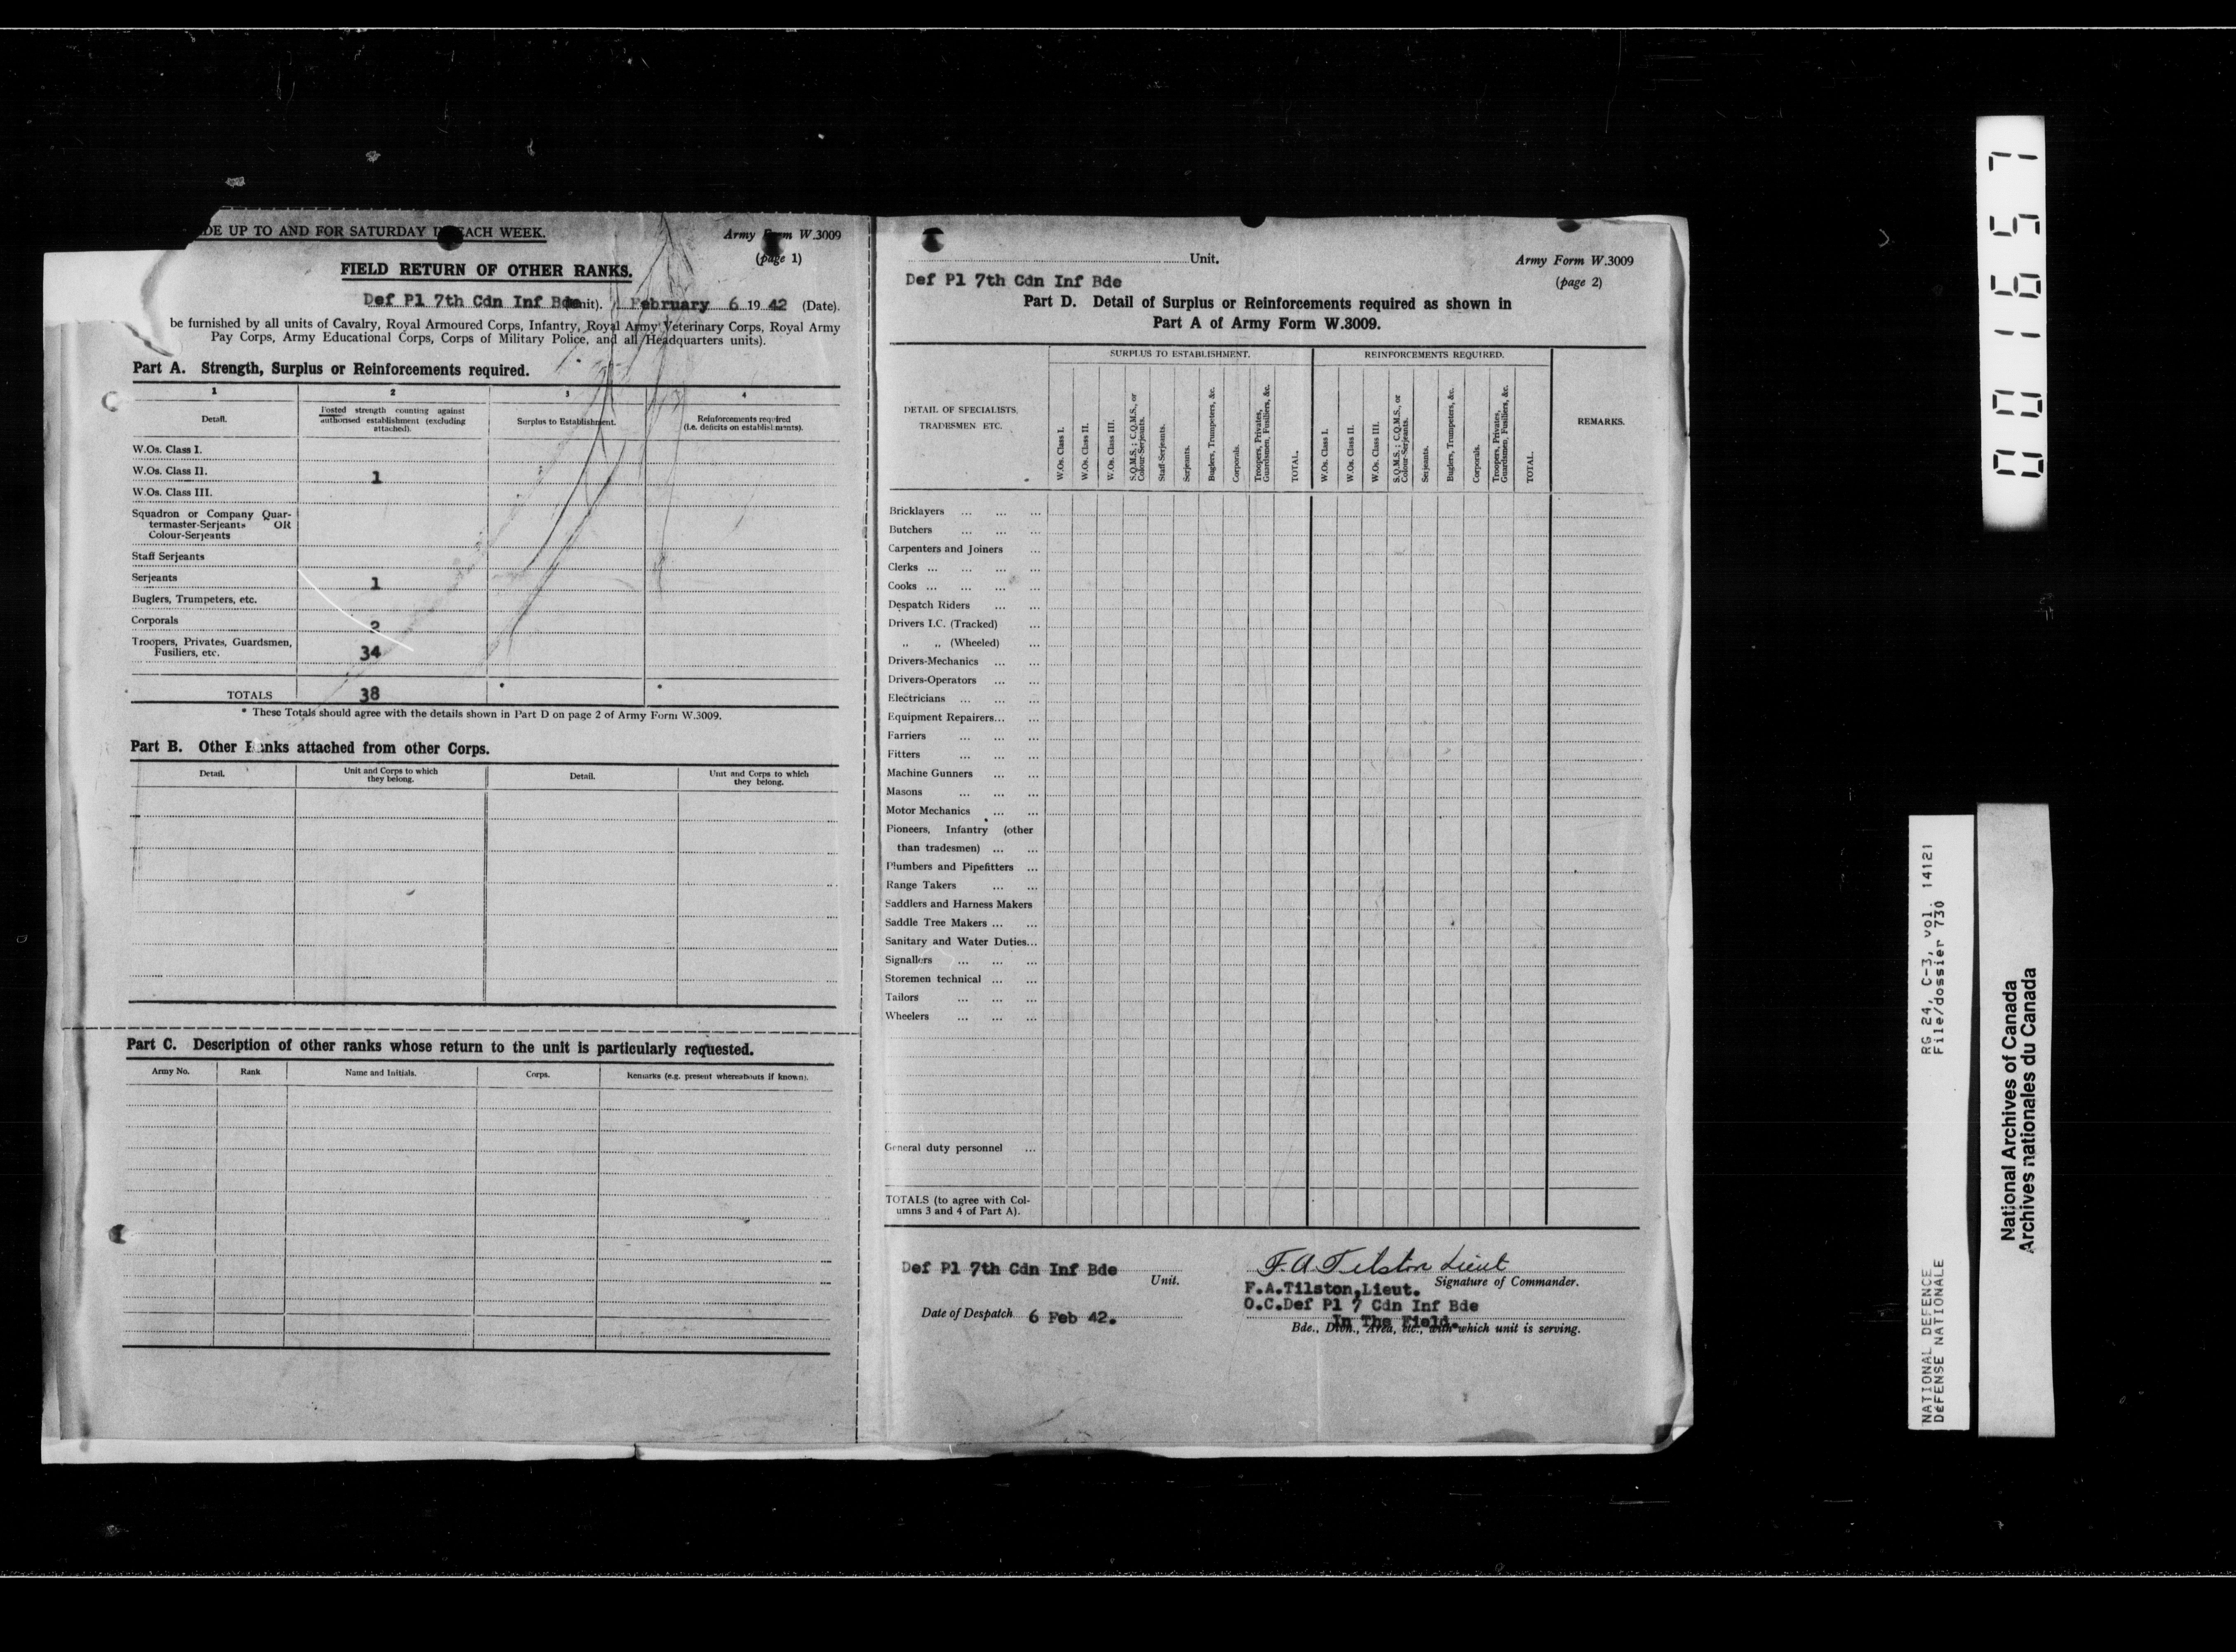 DE UP TO AND FOR SATURDAY IN EACH WEEK.
Army Form W.3009
(page 1)
FIELD RETURN OF OTHER RANKS.
Def Pl 7th Cdn Inf Bde (Unit). February 6 19 42 (Date).
be furnished by all units of Cavalry, Royal Armoured Corps, Infantry, Royal Army Veterinary Corps, Royal Army
Pay Corps, Army Educational Corps, Corps of Military Police, and all Headquarters units).
Part A. Strength, Surplus or Reinforcements required.
1 2 3 4
Detail.
Posted strength counting against
authorised establishment (excluding
attached).
Surplus to Establishment.
Reinforcements required
(i.e. deficits on establishments).
W.Os. Class I.
W.Os. Class II. 1
W.Os. Class III.
Squadron or Company Quar-
termaster-Serjeants OR
Colour-Serjeants
Staff Serjeants
Serjeants 1
Buglers, Trumpeters, etc.
Corporals 2
Troopers, Privates, Guardsmen,
Fusiliers, etc. 34
TOTALS 38 * *
* These Totals should agree with the details shown in Part D on page 2 of Army Form W.3009.
Part B. Other Ranks attached from other Corps.
Detail.
Unit and Corps to which
they belong.
Detail.
Unit and Corps to which
they belong.
Part C. Description of other ranks whose return to the unit is particularly requested.
Army No. Rank Name and Initials. Corps. Remarks (e.g. present whereabouts if known).
Unit.
Army Form W.3009
(page 2)
Def Pl 7th Cdn Inf Bde
Part D. Detail of Surplus or Reinforcements required as shown in
Part A of Army Form W.3009.
DETAIL OF SPECIALISTS,
TRADESMEN ETC.
SURPLUS TO ESTABLISHMENT.
REINFORCEMENTS REQUIRED.
REMARKS.
W.Os. Class I.
W.Os. Class II.
W.Os. Class III.
S.Q.M.S.; C.Q.M.S., or
Colour-Serjeants.
Staff-Serjeants.
Serjeants.
Buglers, Trumpeters, &c.
Corporals.
Troopers, Privates,
Guardsmen, Fusiliers, &c.
TOTAL.
W.Os. Class I.
W.Os. Class II.
W.Os. Class III.
S.Q.M.S.; C.Q.M.S., or
Colour-Serjeants.
Serjeants.
Buglers, Trumpeters, &c.
Corporals.
Troopers, Privates,
Guardsmen, Fusiliers, &c.
TOTAL.
Bricklayers ... ... ...
Butchers ... ... ...
Carpenters and Joiners ...
Clerks ... ... ... ...
Cooks ... ... ... ...
Despatch Riders ... ...
Drivers I.C. (Tracked) ...
„ „ (Wheeled) ...
Drivers-Mechanics ... ...
Drivers-Operators ... ...
Electricians ... ... ...
Equipment Repairers... ...
Farriers ... ... ...
Fitters ... ... ...
Machine Gunners ... ...
Masons ... ... ...
Motor Mechanics ... ...
Pioneers, Infantry (other
than tradesmen) ... ...
Plumbers and Pipefitters ...
Range Takers ... ...
Saddlers and Harness Makers
Saddle Tree Makers ... ...
Sanitary and Water Duties...
Signallers ... ... ...
Storemen technical ... ...
Tailors ... ... ...
Wheelers ... ... ...
General duty personnel ...
TOTALS (to agree with Col-
umns 3 and 4 of Part A).
Def Pl 7th Cdn Inf Bde
Unit.
Date of Despatch 6 Feb 42.
F.A. Tilston Lieut
Signature of Commander.
F.A.Tilston,Lieut.
O.C.Def Pl 7 Cdn Inf Bde
In The Field.
Bde., Divn., Area, etc., with which unit is serving.
001657
RG 24, C-3, vol. 14121
File/dossier 730
NATIONAL DEFENCE
DÉFENSE NATIONALE
National Archives of Canada
Archives nationales du Canada